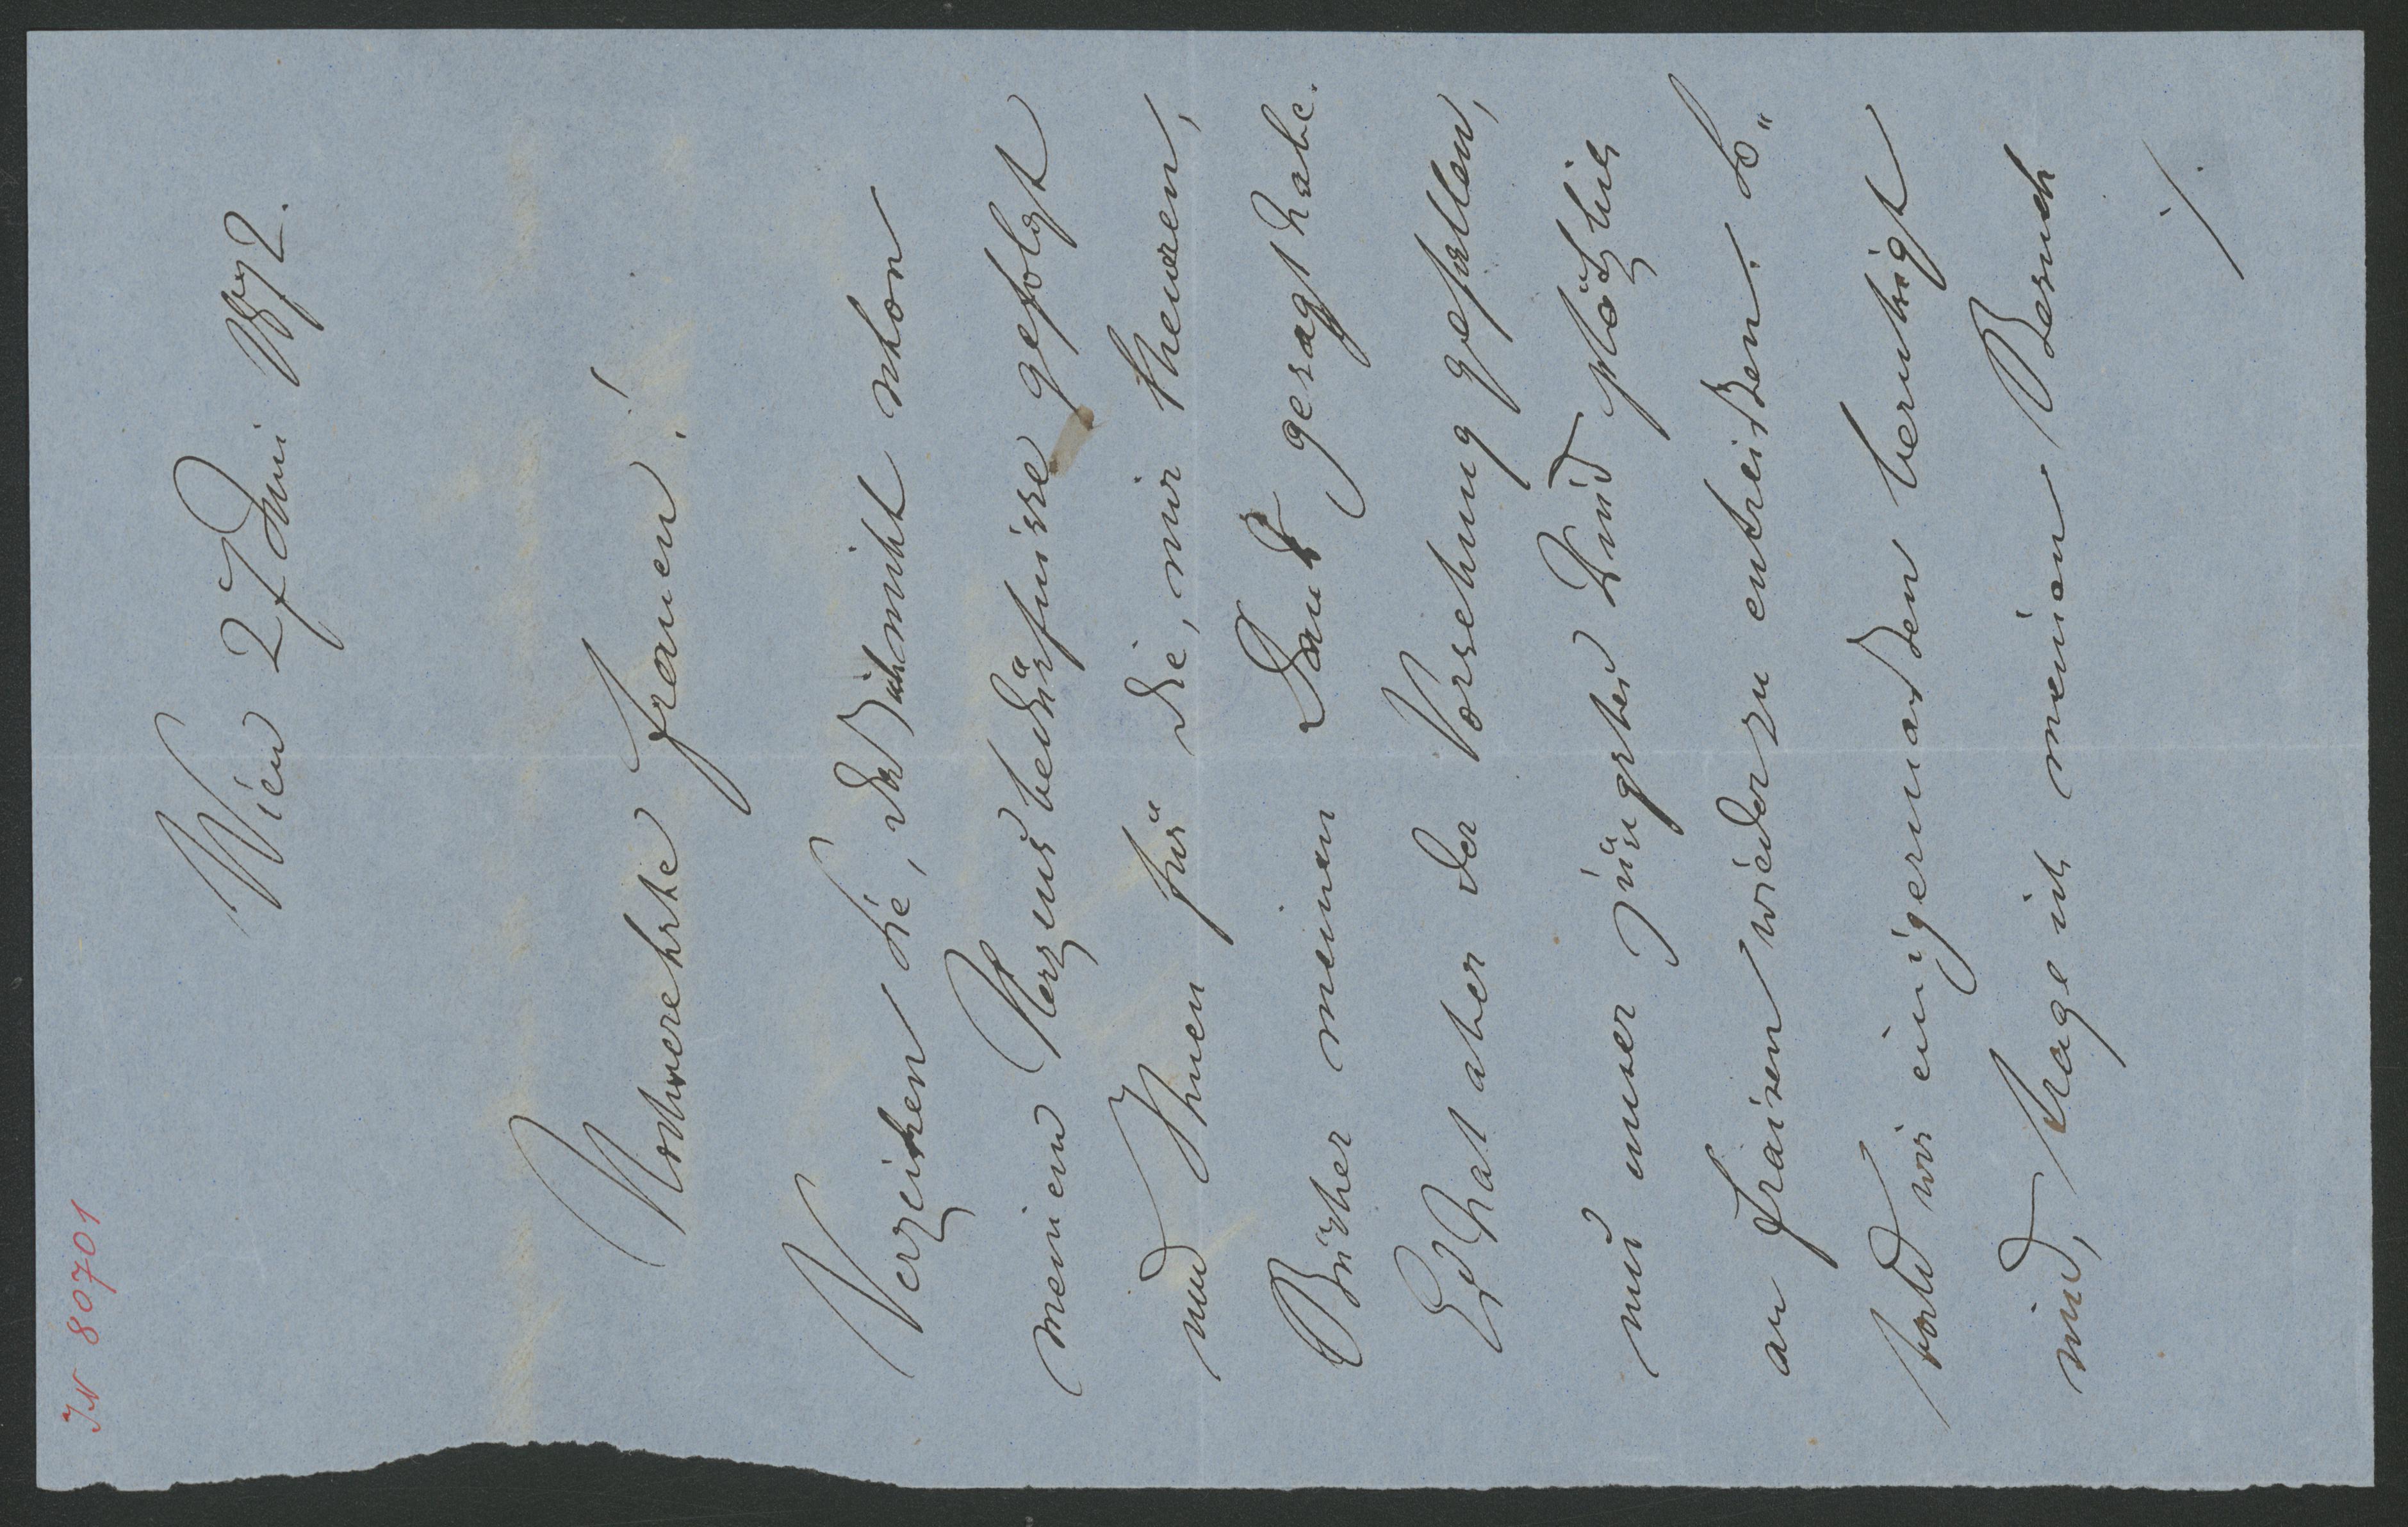 IN 80701
Wien 27 Juni 1872.
Hochverehrte Frauen!
Verzeihen Sie, daß ich nicht schon
meinem Herzensbedürfnisse gefolgt
und Ihnen für die, mir theuren,
Bücher meinen Dank gesagt habe.
Es hat aber der Vorsehung gefallen,
uns unser jüngstes Kind plötzlich
an Fraisen wieder zu entreißen. So„
bald wir einigermaßen beruhigt
sind, trage ich meinen Besuch
./.